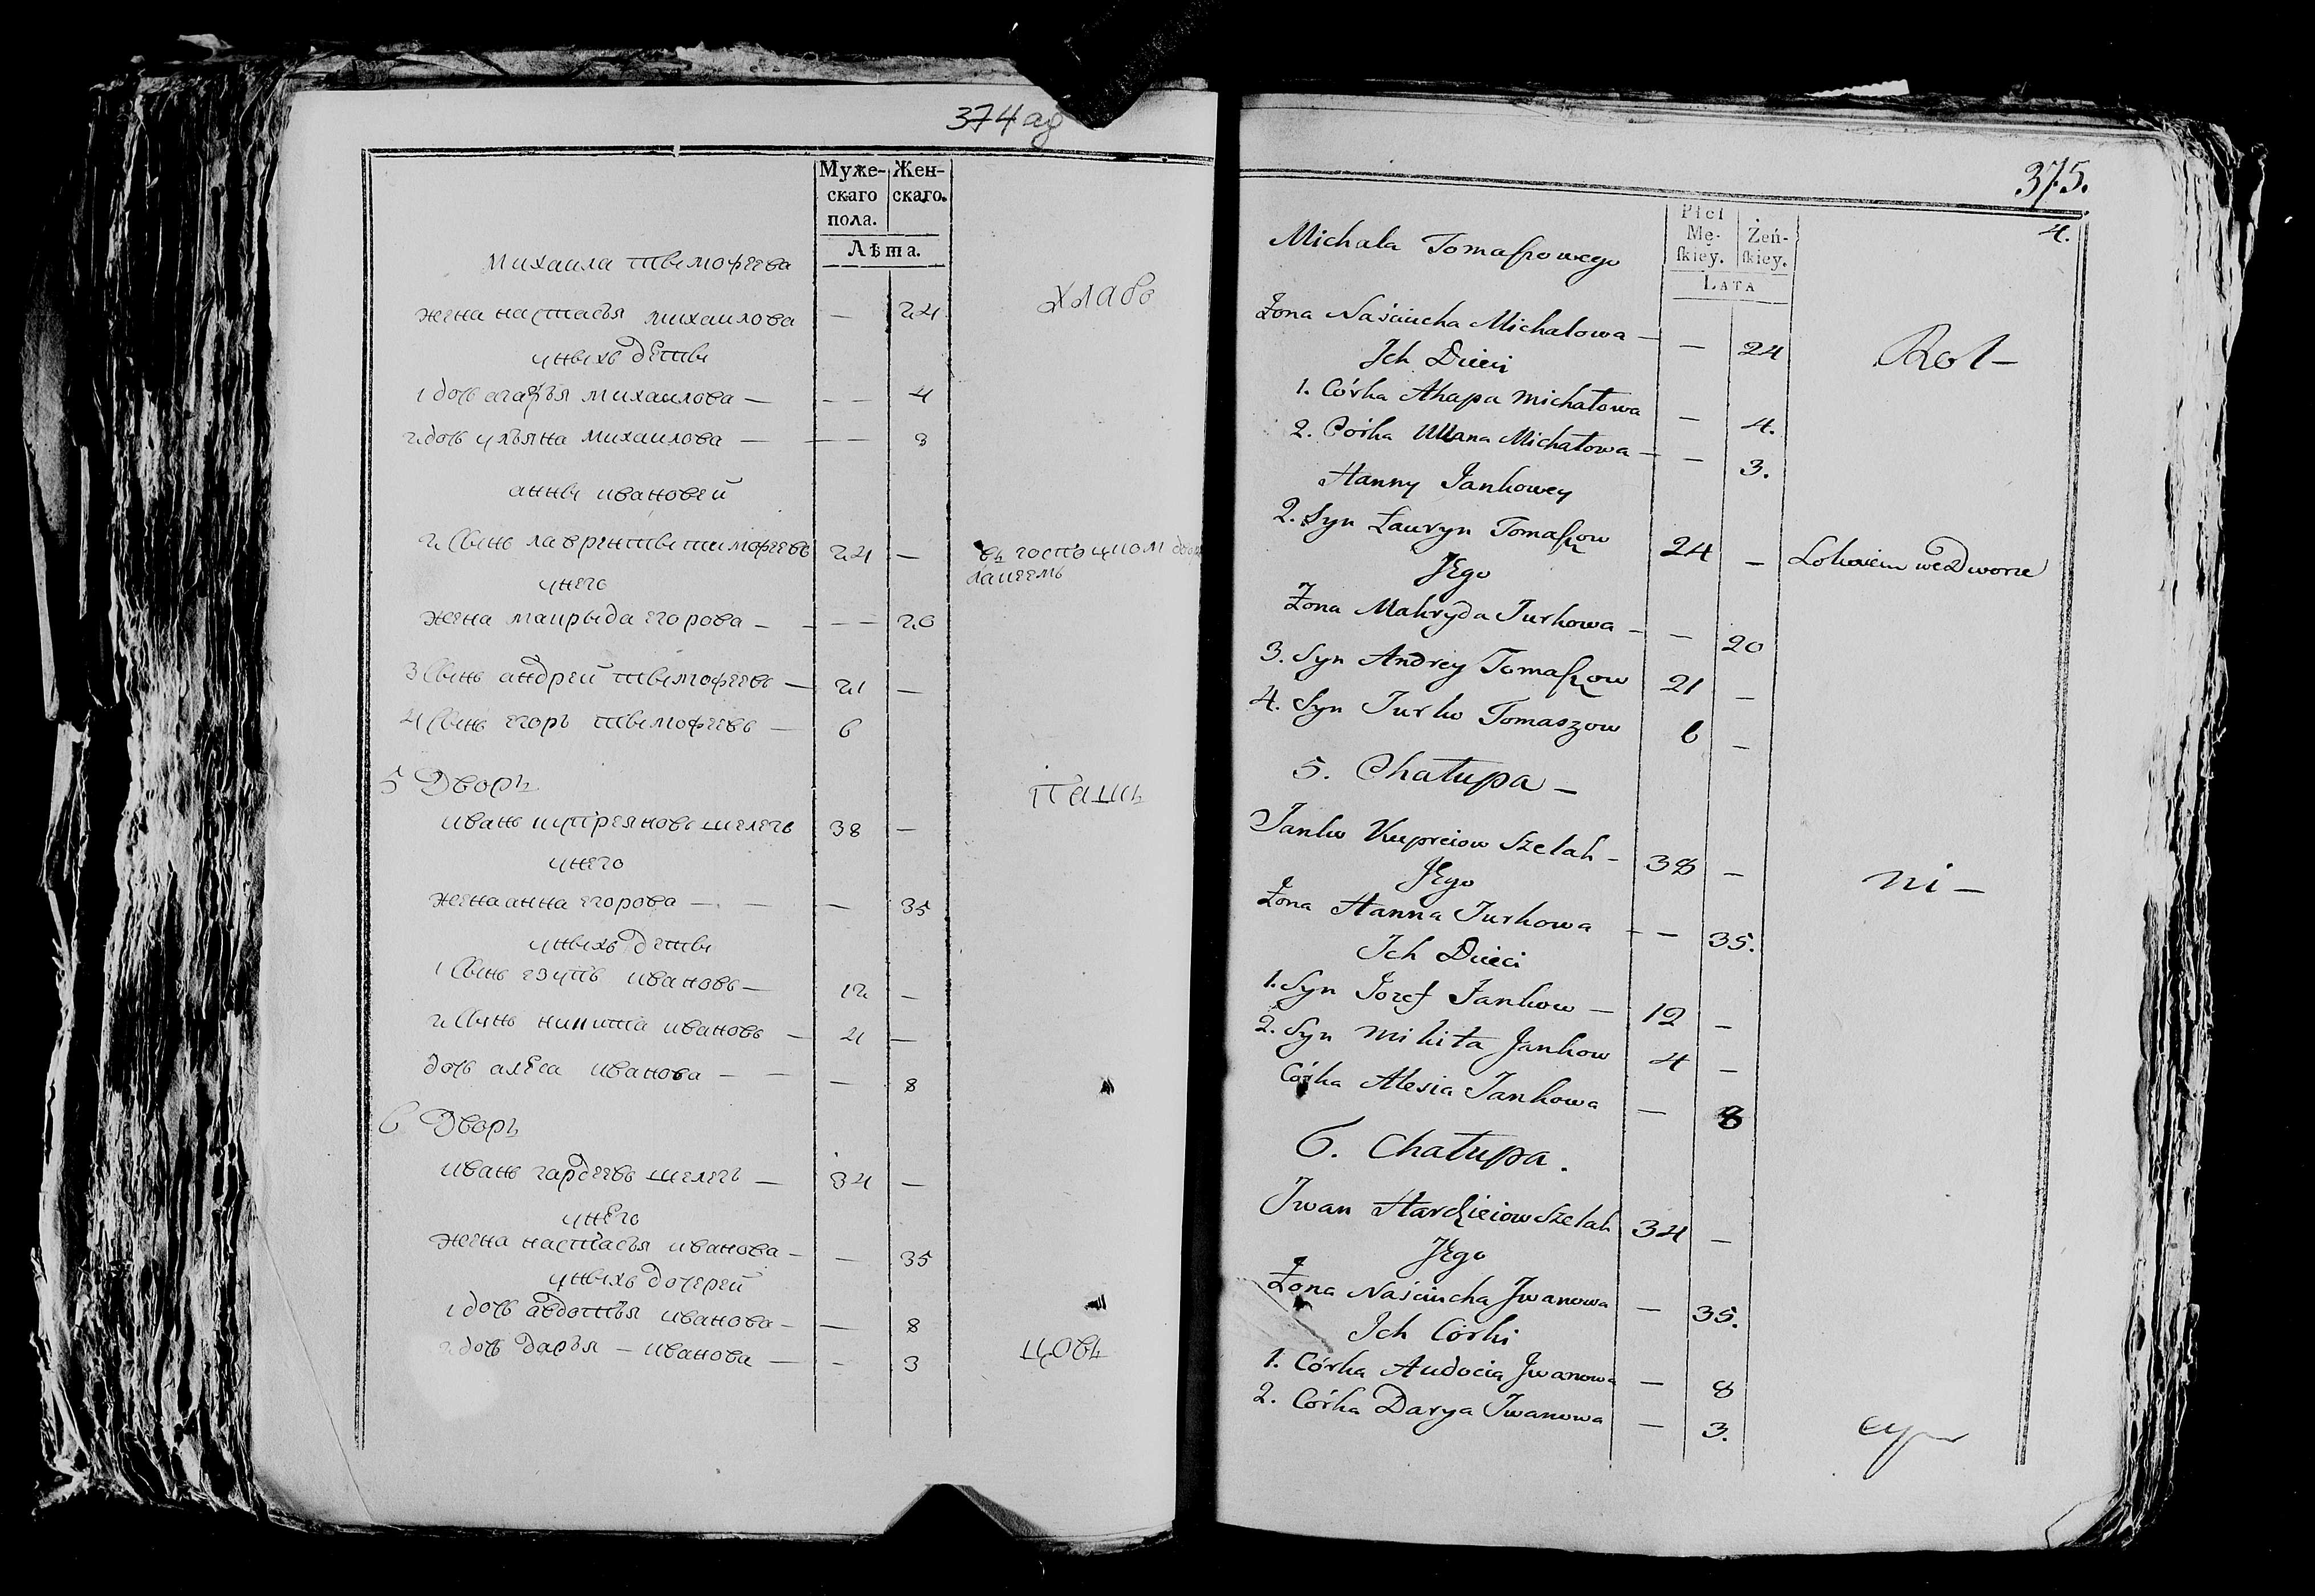 374 ад
Муже-
скаго
пола.
Жен-
скаго.
Лѣта.
михаила тимофеева
жена настасья михаилова — 24
хлабо
уныхъ дѣти
1 дочь агафья михаилова — — — 4
2 дочь ульяна михаилова — — — 3
анны ивановей
2 сынъ лаврентiи тимофеевъ 24 —
въ господцком
лакеемъ
унего
жена макрыда егорова — — — 20
3 сынъ андрей тимофеевъ — 21 —
4 сынъ егоръ тимофеевъ — 6
5 Дворъ
пашц
иванъ купреяновъ шелегъ 38 —
унего
жена анна егорова — — — 35
уныхъ дети
1 сынъ езупъ ивановъ — 12 —
2 сынъ никита ивановъ — 4 —
дочь алеса иванова — — — 8
6 Дворъ
иванъ гардеевъ шелегъ — 34 —
унего
жена настасья иванова — — 35
уныхъ дочерей
1 дочь авдотья иванова — — 8
2 дочь дарья — иванова — - 3
цовъ
375.
4.
Płci
Mę-
ſkiey.
Żeń-
ſkiey.
LATA
Michała Tomaszowego
Żona Naściucha Michałowa — — 24
Rol—
Ich Dzieci
1. Córka Ahapa Michałowa — 4.
2. Córka Ullana Michałowa — — 3.
Hanny Jankowey
2. Syn Łauryn Tomaszow 24 —
Lokaiem we Dworze
Jego
Żona Makryda Jurkowa — — 20
3. Syn Andrey Tomaszow 21 —
4. Syn Jurko Tomaszow 6 —
5. Chałupa —
Janko Kupreiow Szelah — 38 —
ni —
Jego
Żona Hanna Jurkowa — — 35.
Ich Dzieci
1. Syn Jozef Jankow — 12 —
2. Syn Mikita Jankow 4 —
Córka Alesia Jankowa — 8
6. Chałupa.
Iwan Hardzieiow Szelah 34 —
Jego
Żona Naściucha Iwanowa — 35.
Ich Córki
1. Córka Audocia Iwanowa — 8
2. Córka Darya Iwanowa — 3.
cy